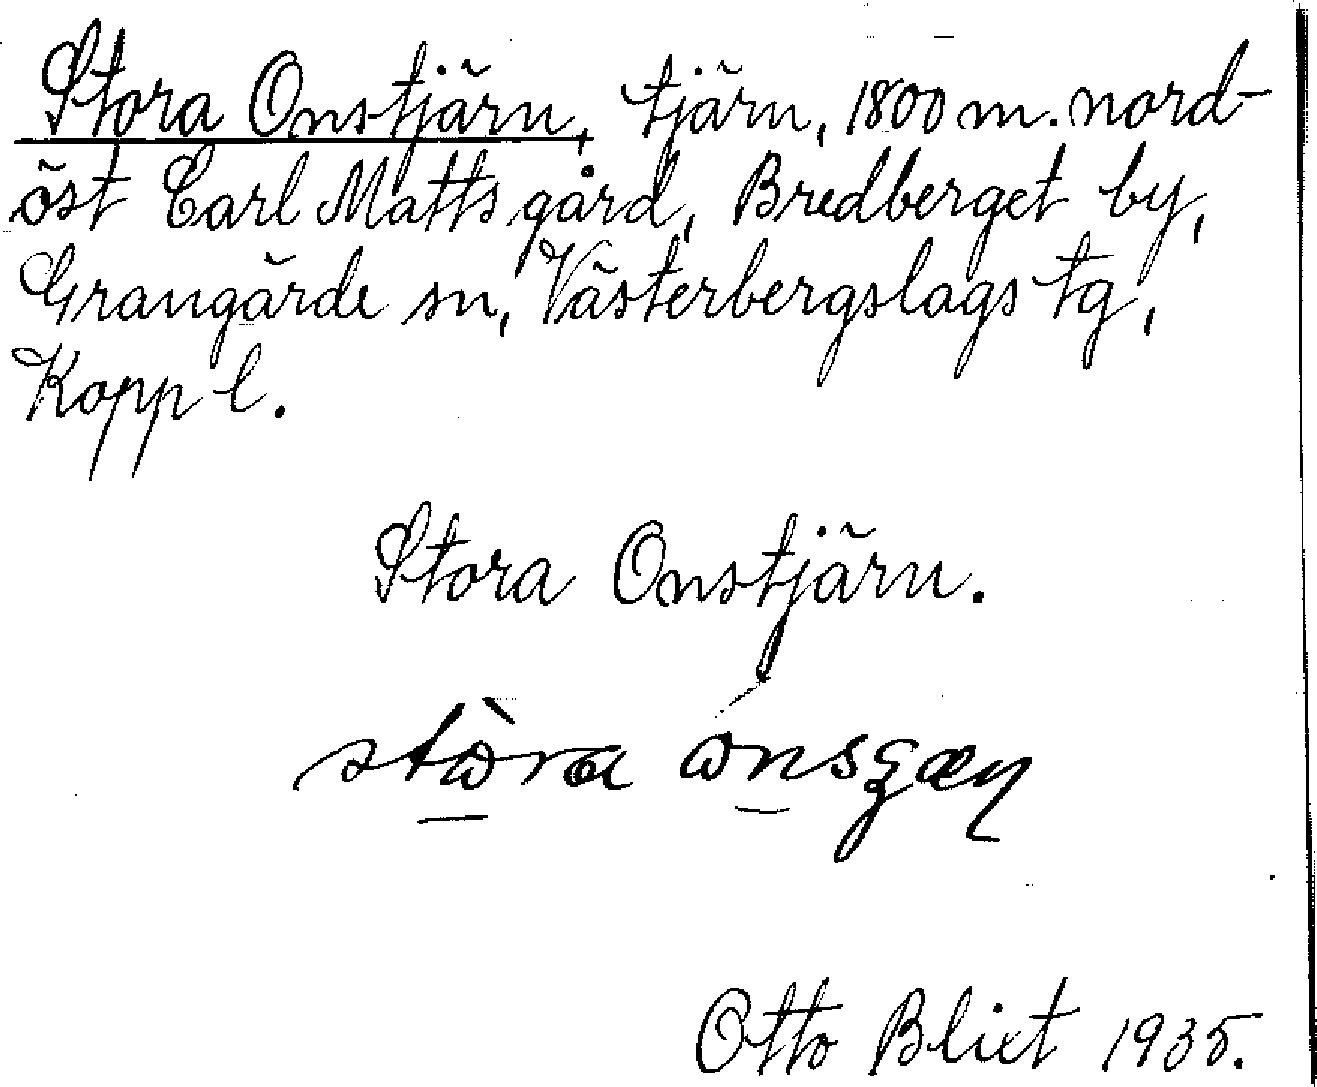 Stora Onstjärn, tjärn, 1800 m. nord-
öst Carl Matts gård, Bredberget by,
Grangärde sn, Västerbergslags tg,
Kopp l.
Stora Onstjärn.
Otto Blixt 1935.